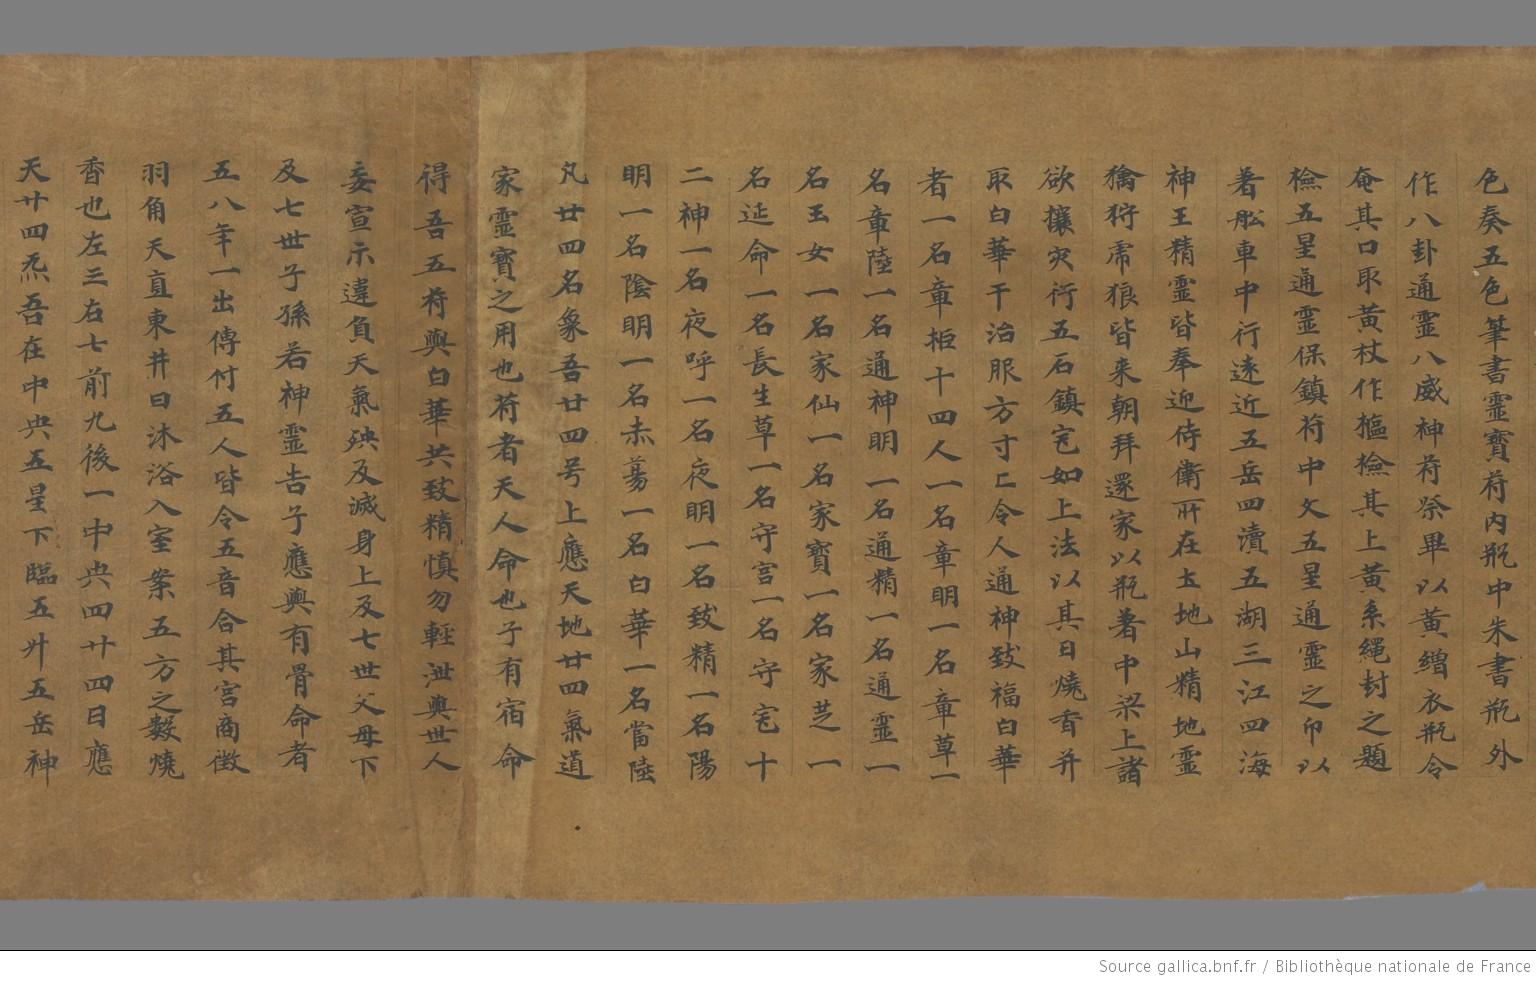 色奏五色筆書靈寶苻内瓶中朱書瓶外
作八卦通靈八威神苻祭畢以黃繒衣瓶令
奄其口取黃杖作摳檢其上黃系繩封之題
檢五星通靈保鎮苻中文五星通靈之印以
著舩車中行遠近五岳四瀆五湖三江四海
神王精靈皆奉迎侍衛所在土地山精地靈
禽狩虎狼皆来朝拜還家以瓶著中梁上諸
欲攘灾行五石鎮宅如上法以其日燒香并
取白華干治服方寸匕令人通神致福白華
者一名章柜十四人一名章明一名章草一
名章陸一名通神明一名通精一名通靈一
名玉女一名家仙一名家寶一名家芝一
名延命一名長生草一名守宮一名守宅十
二神一名夜呼一名夜明一名致精一名陽
明一名陰明一名赤蒭一名白華一名當陸
凡廿四名象吾廿四号上應天地廿四氣道
家靈寶之用也苻者天人命也子有宿命
得吾五苻與白華共致精慎勿輕泄與世人
妄宣示違負天氣殃及滅身上及七世父母下
及七世子孫若神靈告子應與有骨命者
五八年一出傳付五人皆令五音合其宮商徵
羽角天直東井日沐浴入室案五方之數燒
香也左三右七前九後一中央四廿四日應
天廿四炁吾在中央五星下臨五卅五岳神
Source gallica.bnf.fr / Bibliothèque nationale de France